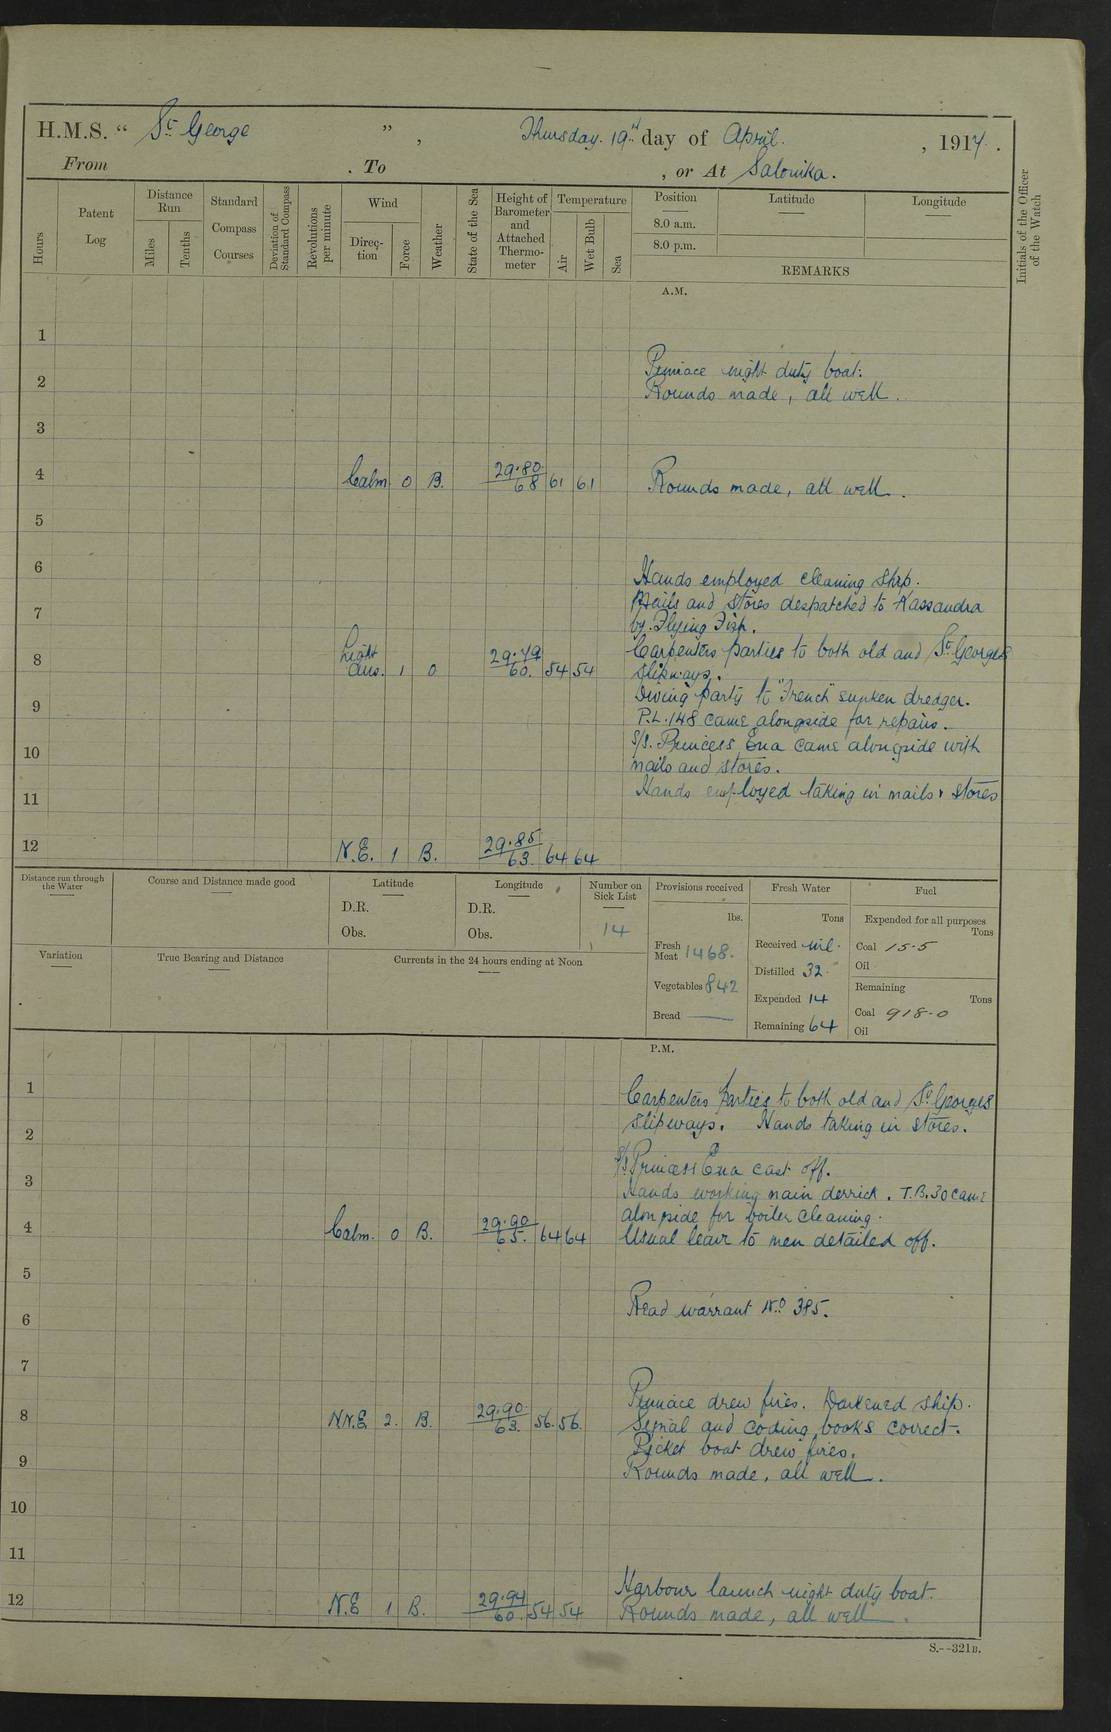 H.M.S. " St George " , Thursday. 19th day of April. , 1917.
From . To , or At Salonika.
Hours
Patent Log
Distance Run
Miles
Tenths
Standard Compass Courses
Deviation of Standard Compass
Revolutions per minute
Wind
Direction
Force
Weather
State of the Sea
Height of Barometer and Attached Thermometer
Temperature
Air
Wet Bulb
Sea
Position
8.0 a.m.
8.0 p.m.
Latitude
Longitude
REMARKS
Initials of the Officer of the Watch
A.M.
1
Pinnace night duty boat.
2
Rounds made, all well.
3
4 Calm 0 B. 29.80 68 61 61 Rounds made, all well.
5
6
Hands employed cleaning ship.
7 Mails and stores despatched to Kassandra
by Flying Fish.
8 Light airs. 1 0 29.79 60. 54 54 Carpenters parties to both old and St Georges
slipways.
Diving party to "French" sunken dredger.
9
P.L. 148 came alongside for repairs.
S/S. Princess Ena came alongside with
10
mails and stores.
Hands employed taking in mails & stores
11
12 N.E. 1 B. 29.85 63. 64 64
Distance run through the Water
Course and Distance made good
Latitude
D.R.
Obs.
Longitude
D.R.
Obs.
Number on Sick List
14
Provisions received
lbs.
Fresh Meat 1468.
Vegetables 842
Bread —
Fresh Water
Tons
Received nil.
Distilled 32
Expended 14
Remaining 64
Fuel
Expended for all purposes
Tons
Coal 15.5
Oil
Remaining
Tons
Coal 918.0
Oil
Variation
True Bearing and Distance
Currents in the 24 hours ending at Noon
P.M.
1
Carpenters parties to both old and St Georges
slipways. Hands taking in stores.
2
S/S Princess Ena cast off.
3
Hands working main derrick. T.B. 30 came
alongside for boiler cleaning.
4 Calm. 0 B. 29.90 65. 64 64 Usual leave to men detailed off.
5
Read warrant No 395.
6
7
Pinnace drew fires. Darkened ship.
8 N.N.E. 2. B. 29.90. 63. 56. 56. Signal and coding books correct.
Picket boat drew fires.
9 Rounds made, all well.
10
11
Harbour launch night duty boat.
12 N.E 1 B. 29.94 60. 54 54 Rounds made, all well.
S.--321B.